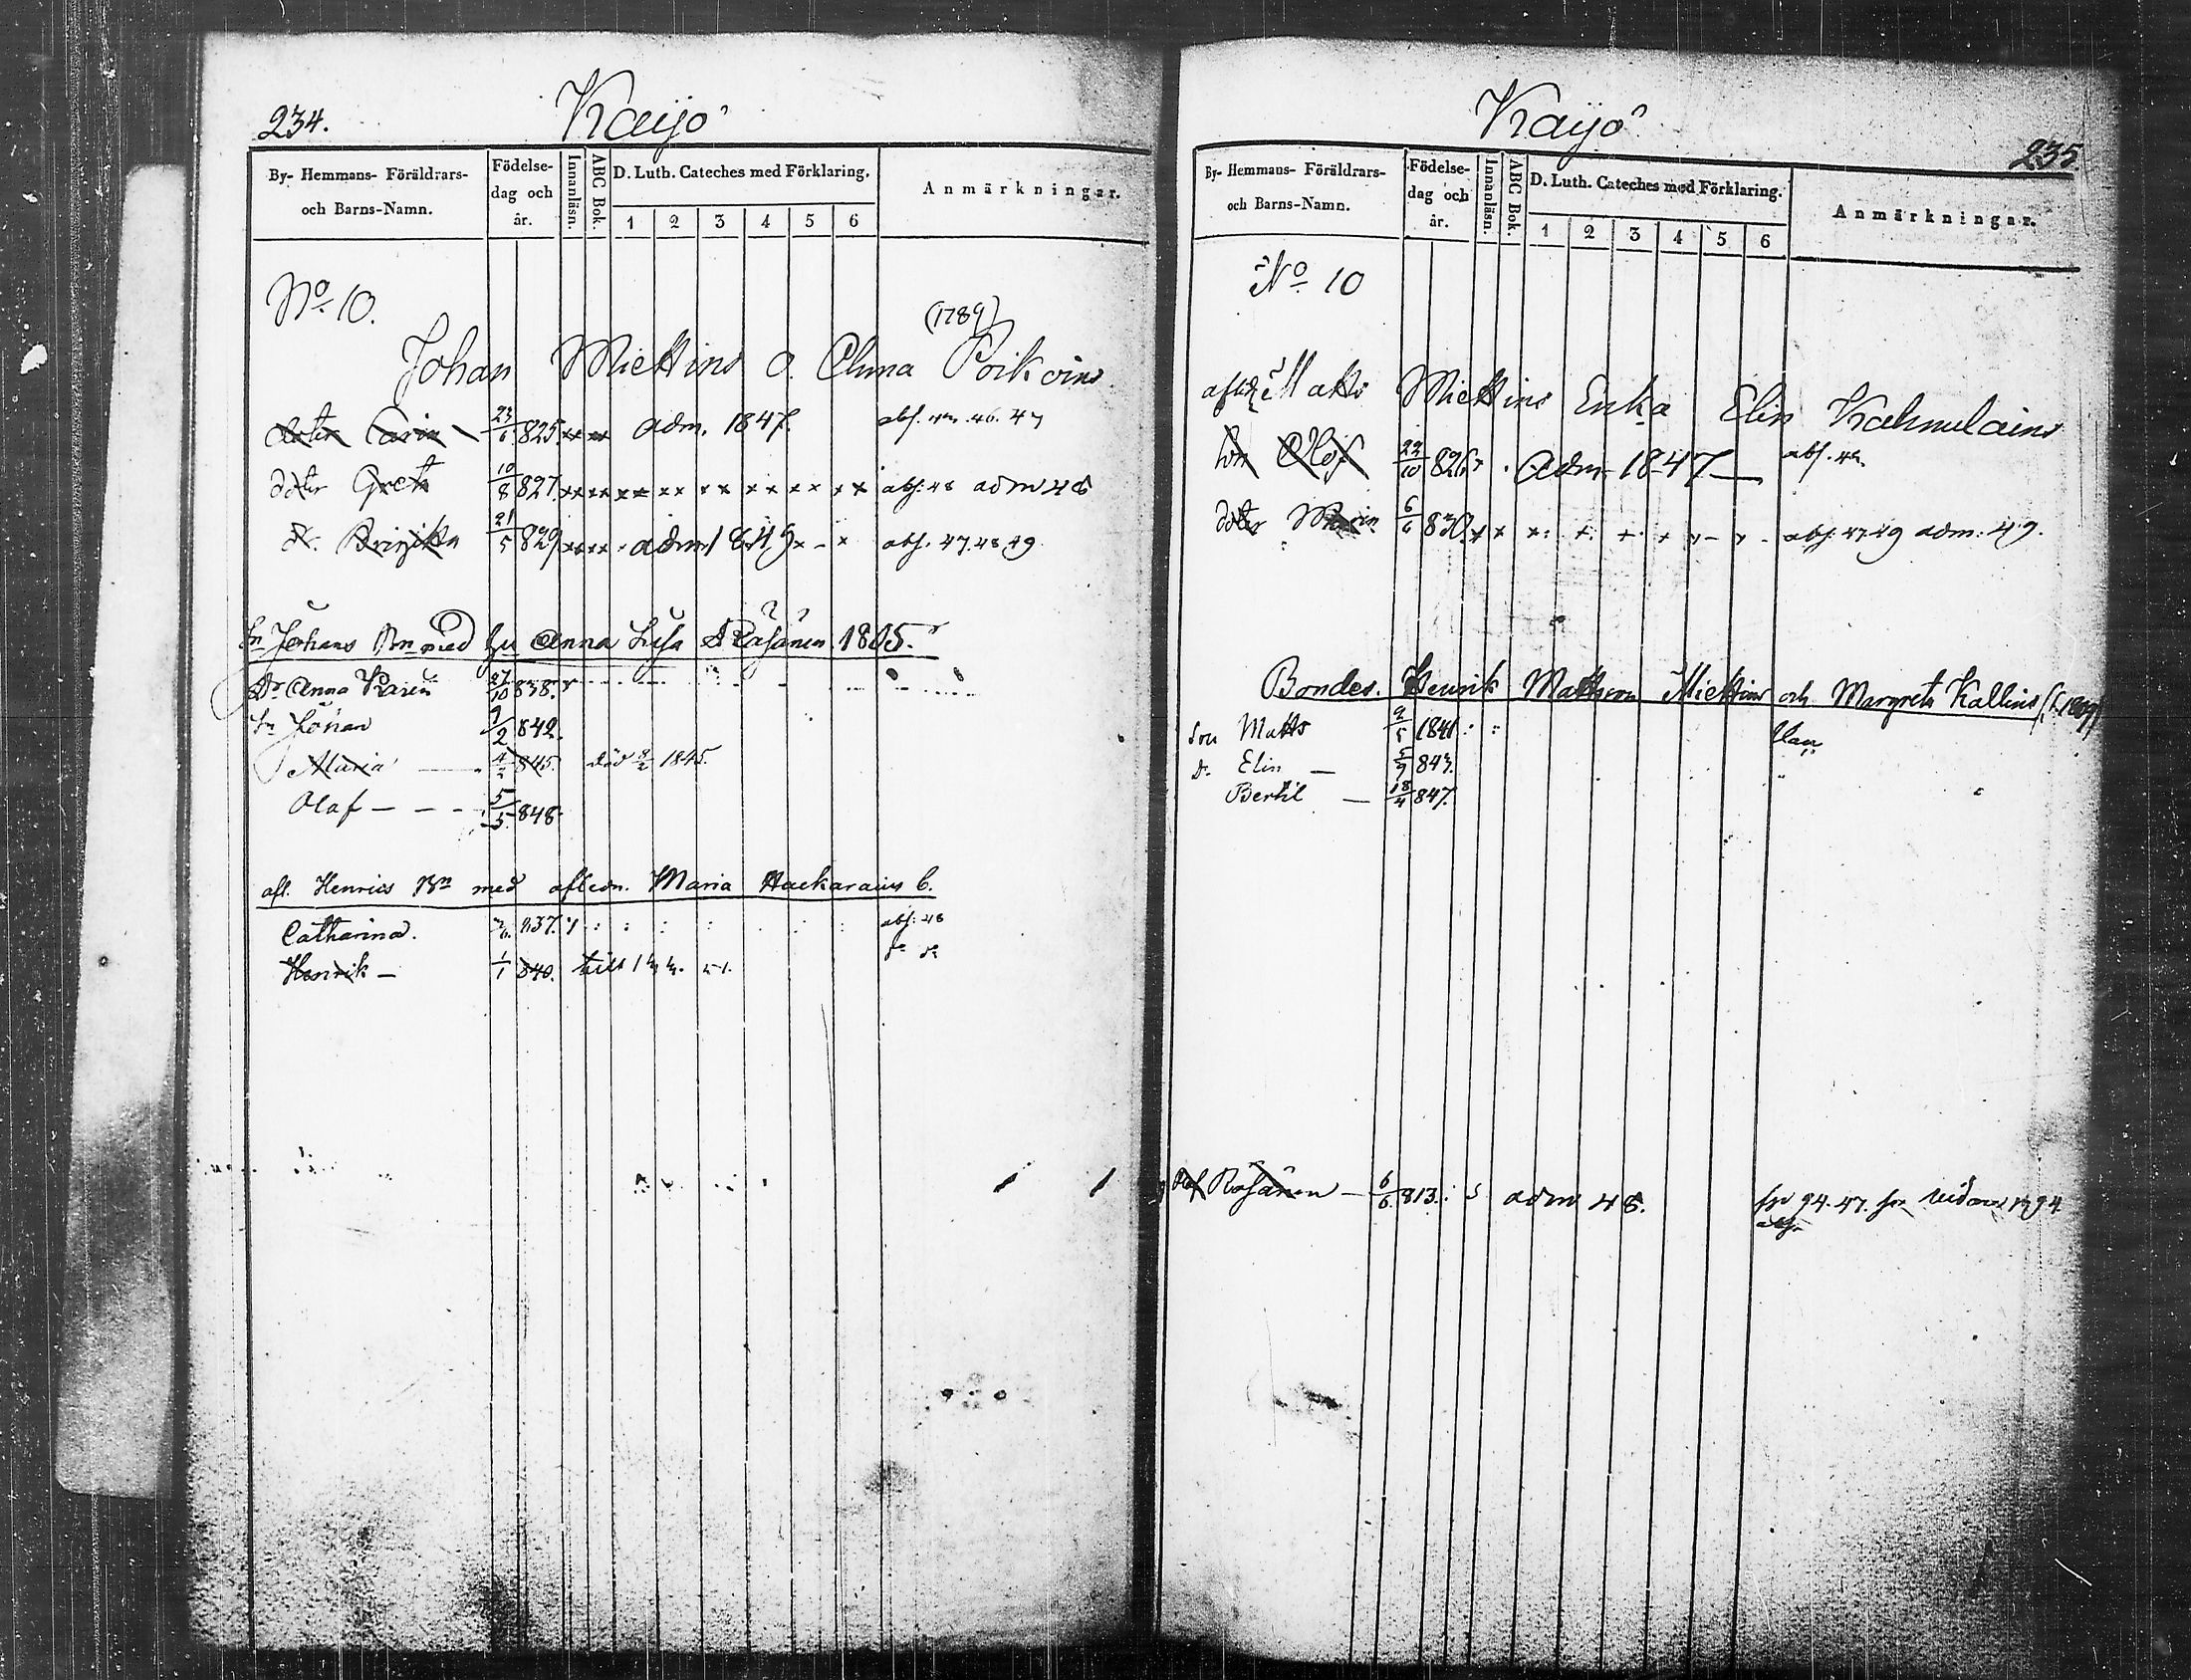 234.
Kaijo
By- Hemmans- Föräldrars- och Barns-Namn.
Födelse- dag och år.
Innanläsn.
ABC Bok.
D. Luth. Cateches med Förklaring.
1 2 3 4 5 6
Anmärkningar.
No 10.
(1789)
Johan Miettins o. Anna Poikoins
doter Carin 23/6 825. adm. 1847. abs. 46. 47
doter Greta 10/8 827. abs: 48 adm 48
dr. Brigitta 21/5 829 adm 1849 abs. 47. 48. 49
Sn Johans Bn med hu Anna Lisa Räsänen 1805.
Dr Anna Karin 27/10 838.
Sn Johan 9/2 842.
Maria 4/2 845. död 8/2 1845.
Olaf — — - 5/5 848
afl. Henrics Bn med afledn. Maria Hackarains b.
Catharina. 837. abs: 48
Henrik — 1/1 840. dr dr
Kaijo
235.
By- Hemmans- Föräldrars- och Barns-Namn.
Födelse- dag och år.
Innanläsn.
ABC Bok.
D. Luth. Cateches med Förklaring.
1 2 3 4 5 6
Anmärkningar.
No 10
afledn Matts Miettins Enka Elin Kahmulains
son Olof 22/10 826 adm 1847 —
doter Maria 6/6 830. abs: 47. 49 adm: 49.
Bondes. Henrik Mattsson Miettins och Margreta Kallins
Son Matts 9/5 1841
Dr Elin — 5/9 843.
Bertil — 18/4 847.
Räsänen — 6/6 813. adm 48. 94. 47. 94